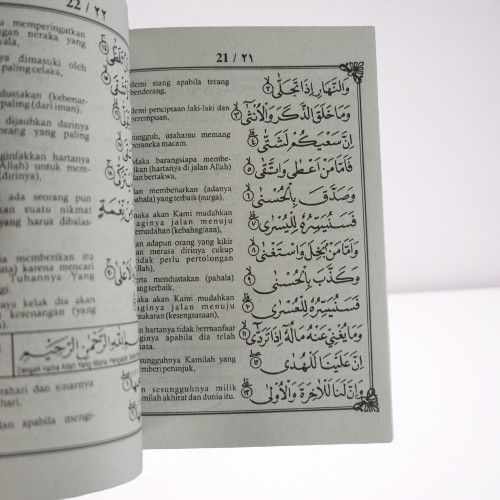 21 / ٢١
demi siang apabila terang
benderang,
وَالنَّهَارِ إِذَا تَجَلَّىٰ ٢
demi penciptaan laki-laki dan
perempuan,
وَمَا خَلَقَ الذَّكَرَ وَالْأُنْثَىٰ ٣
sungguh, usahamu memang
beraneka macam.
إِنَّ سَعْيَكُمْ لَشَتَّىٰ ٤
Maka barangsiapa membe-
rikan (hartanya di jalan Allah)
dan bertakwa,
فَأَمَّا مَنْ أَعْطَىٰ وَاتَّقَىٰ ٥
dan membenarkan (adanya
pahala) yang terbaik (surga),
وَصَدَّقَ بِالْحُسْنَىٰ ٦
maka akan Kami mudahkan
baginya jalan menuju
kemudahan (kebahagiaan),
فَسَنُيَسِّرُهُ لِلْيُسْرَىٰ ٧
Dan adapun orang yang kikir
dan merasa dirinya cukup
tidak perlu pertolongan
Allah),
وَأَمَّا مَنْ بَخِلَ وَاسْتَغْنَىٰ ٨
serta mendustakan (pahala)
yang terbaik,
وَكَذَّبَ بِالْحُسْنَىٰ ٩
maka akan Kami mudahkan
baginya jalan menuju
kesukaran (kesengsaraan),
فَسَنُيَسِّرُهُ لِلْعُسْرَىٰ ١٠
dan hartanya tidak bermanfaat
baginya apabila dia telah
binasa.
وَمَا يُغْنِي عَنْهُ مَالُهُ إِذَا تَرَدَّىٰ ١١
Sesungguhnya Kamilah yang
memberi petunjuk,
إِنَّ عَلَيْنَا لَلْهُدَىٰ ١٢
dan sesungguhnya milik
Kamilah akhirat dan dunia itu.
وَإِنَّ لَنَا لَلْآخِرَةَ وَالْأُولَىٰ ١٣
22 / ٢٢
memperingatkan
neraka yang
dimasuki oleh
paling celaka,
dustakan (kebenar-
paling (dari iman).
dijauhkan darinya
orang yang paling
nginfakkan hartanya
Allah) untuk mem-
(dirinya),
ada seorang pun
kan suatu nikmat
yang harus dibalas-
memberikan itu
karena mencari
Tuhannya Yang
kelak dia akan
kesenangan (yang
بِسْمِ اللَّهِ الرَّحْمَٰنِ الرَّحِيمِ
Dengan nama Allah Yang Maha Pengasih,
dan sinarnya
hari,
apabila mengi-